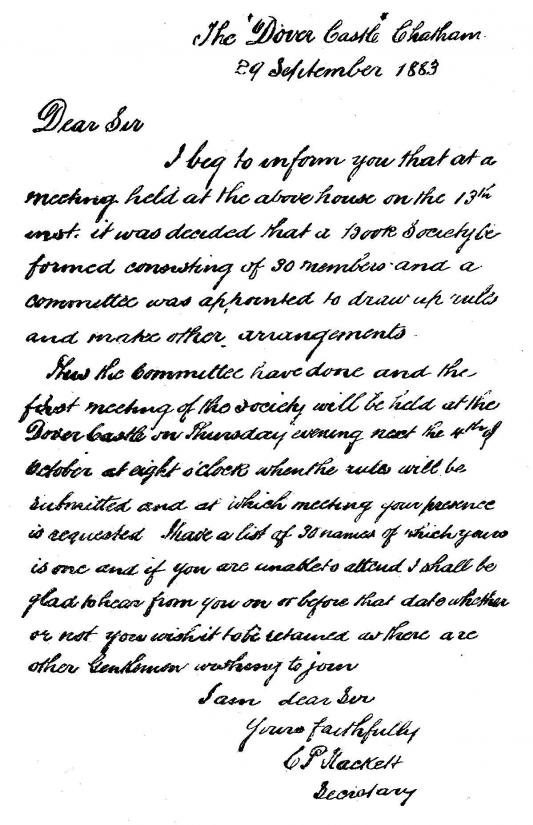 The "Dover Castle" Chatham.
29 September 1883
Dear Sir
I beg to inform you that at a
meeting held at the above house on the 13th
inst. it was decided that a Book Society be
formed consisting of 30 members and a
committee was appointed to draw up rules
and make other arrangements.
This the Committee have done and the
first meeting of the society will be held at the
Dover Castle on Thursday evening next the 4th of
October at eight o'clock when the rules will be
submitted and at which meeting your presence
is requested I have a list of 30 names of which yours
is one and if you are unable to attend I shall be
glad to hear from you on or before that date whether
or not you wish it to be retained as there are
other Gentlemen wishing to join
I am dear Sir
Yours faithfully
C P Hackett
Secretary